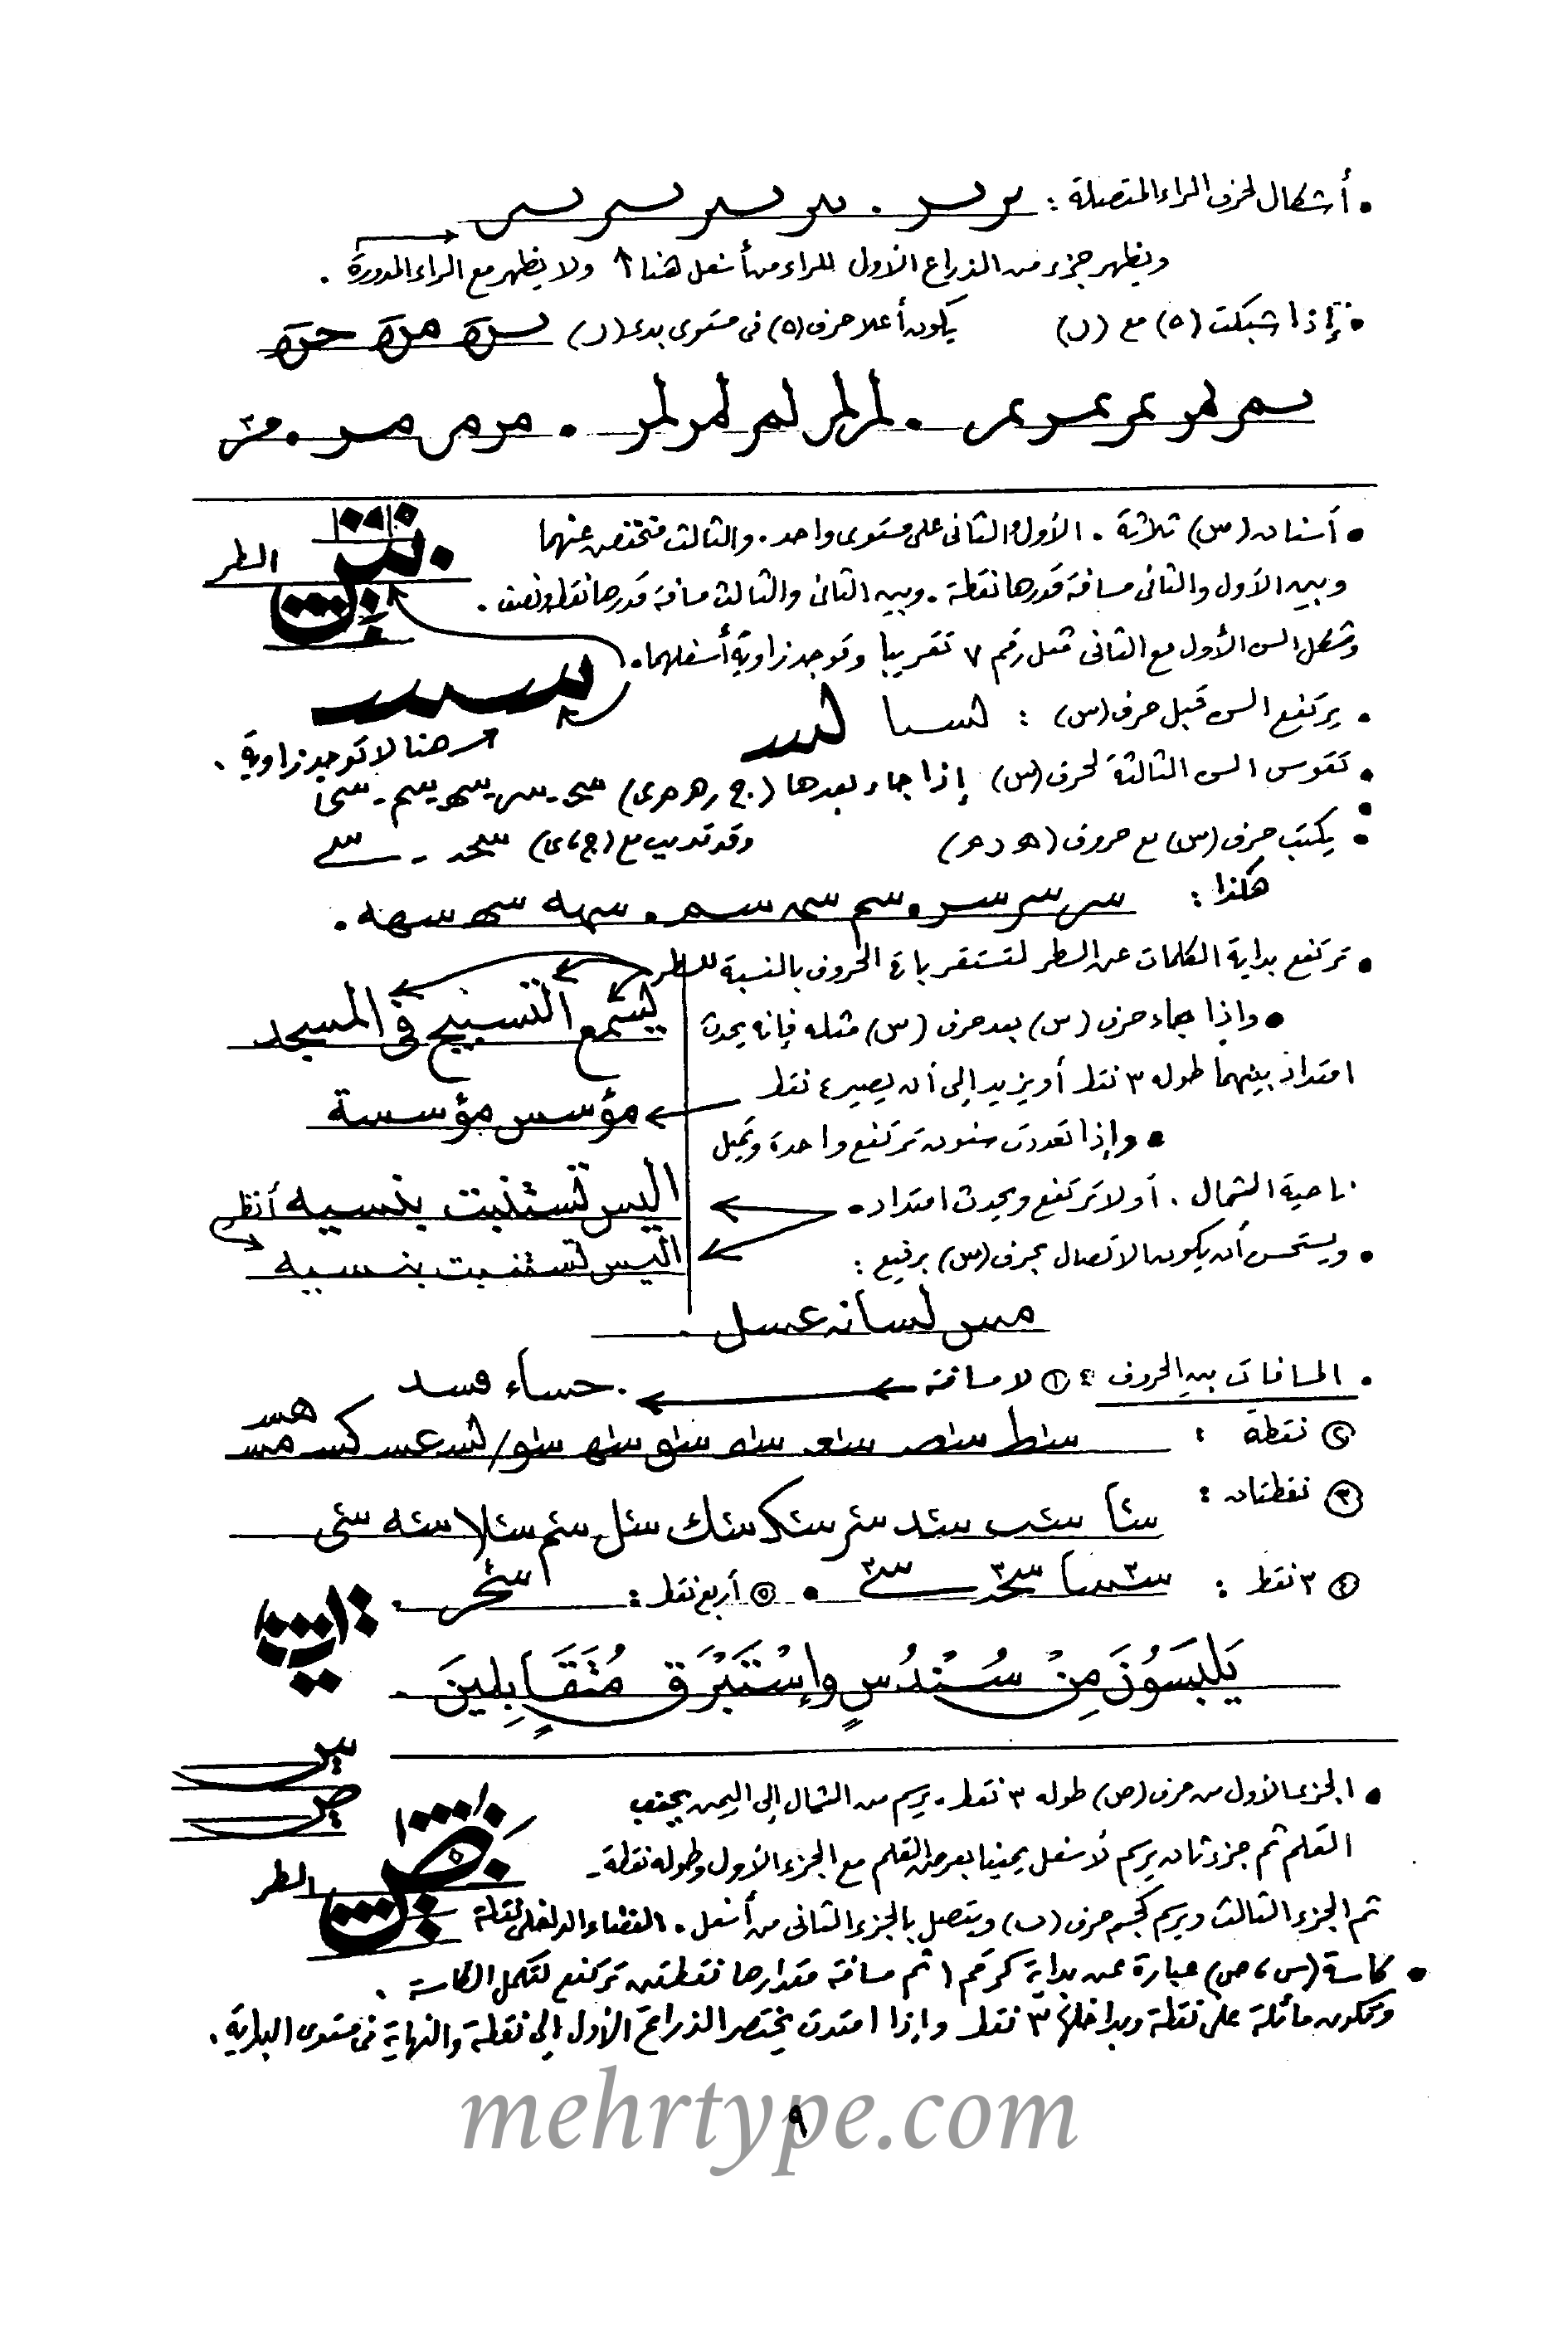 • أشكال لحرف الراء المتصلة : بر سر . سر سر سر سر
ويظهر جزء من الذراع الأول للراء من أسفل هنا ↑ ولا يظهر مع الراء المدورة .
• إذا شبكت (ه) مع (ر) يكون أعلا حرف (ه) فى مستوى بدء (ر) سره مره حره
• أسنان (س) ثلاثة . الأول والثانى على مستوى واحد . والثالث منخفض عنهما
السطر
وبين الأول والثانى مسافة قدرها نقطة . وبين الثانى والثالث مسافة قدرها نقطة ونصف .
وشكل السن الأول مع الثانى مثل رقم ٧ تقريبا وتوجد زاوية أسفلهما .
• يرتفع السن قبل حرف (س) : لسا لس
هنا لا توجد زاوية .
• تقوس السن الثالثة لحرف (س) إذا جاء بعدها
• يكتب حرف (س) مع حروف
هكذا : سر سر سر . سم سم سم . سهه سه سهه .
• ترتفع بداية الكلمات عن السطر لتستقر باقى الحروف بالنسبة للسطر
• وإذا جاء حرف (س) بعد حرف (س) مثله فإنه يحدث
يستمع التسبيح فى المسجد
امتداد بينهما طوله ٣ نقط أو يزيد إلى أن يصير ٤ نقط
مؤسس مؤسسة
• وإذا تعددت سنون ترتفع واحدة وتميل
ناحية الشمال . أو لا ترتفع ويحدث امتداد .
أليس تستنبت بنسيه أنظر
• ويستحسن أن يكون الاتصال بحرف (س) برفيع :
أليس تستنبت بنسيه
مس لسانه عسل .
• المسافات بين الحروف : ① لا مسافة حساء فسد
② نقطة : سط سصر سعر سه سو سه سو / لس عس كس مس
هس
③ نقطتان : سا سب سد سر سك سك سل سم سلا سه سى
④ ٣ نقط : سسا سحد سے • ⑤ أربع نقط : سحر .
يَلبَسُونَ مِنْ سُندُسٍ وإسْتَبْرَقٍ مُتَقَابِلِينَ .
س
ص
• الجزء الأول من حرف (ص) طوله ٣ نقط . يرسم من الشمال إلى اليمين بجنب
القلم ثم جزء ثان يرسم لأسفل يمينا بعرض القلم مع الجزء الأول وطوله نقطة .
السطر
ثم الجزء الثالث ويرسم كجسم حرف (ب) ويتصل بالجزء الثانى من أسفل . الفضاء الداخلى نقطة
• كاسة (س ، ص) عبارة عن بداية كرقم ١ ثم مسافة مقدارها نقطتين ترتفع لتكمل الكاسة .
وتكون مائلة على نقطة وبداخلها ٣ نقط وإذا امتدت يختصر الذراع الأول إلى نقطة والنهاية فى مستوى البداية .
mehrtype.com
٩